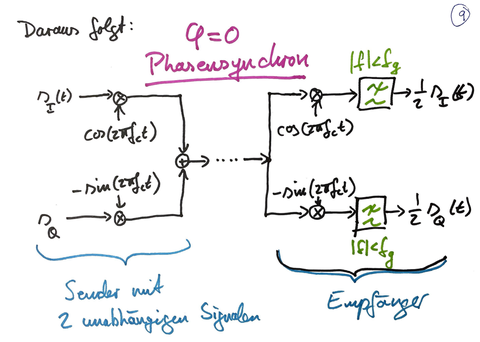 9
Daraus folgt:
φ=0
Phasensynchron
|f|<f_g
s_I(t)
cos(2πf_c t)
cos(2πf_c t)
1/2 s_I(t)
+
....
-sin(2πf_c t)
-sin(2πf_c t)
s_Q
1/2 s_Q(t)
|f|<f_g
Sender mit
2 unabhängigen Signalen
Empfänger